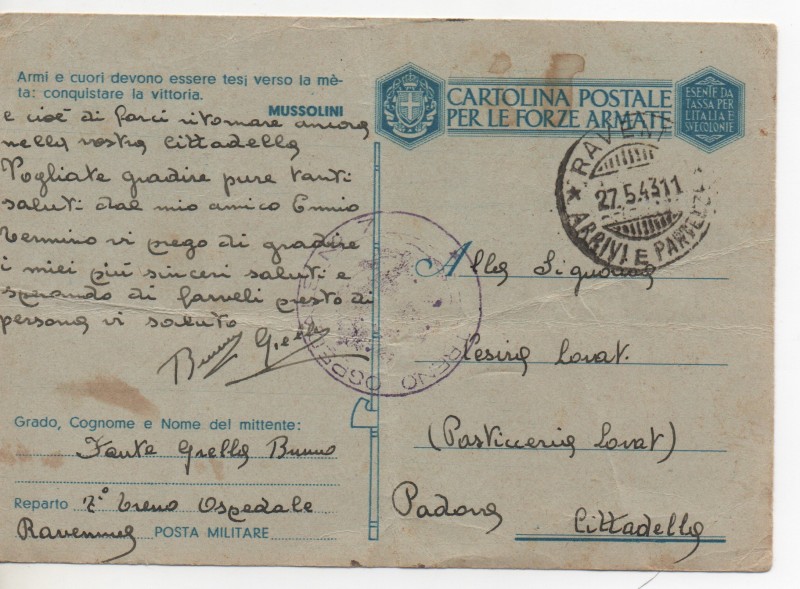 Armi e cuori devono essere tesi verso la mè-
ta: conquistare la vittoria.
MUSSOLINI
e cioè di farci ritornare ancora
nella vostra Cittadella
Vogliate gradire pure tanti
saluti dal mio amico Ennio
Termino vi prego di gradire
i miei più sinceri saluti e
sperando di farveli presto di
persona vi saluto
Bruno
Grado, Cognome e Nome del mittente:
Fante Grella Bruno
Reparto 7° Treno Ospedale
Ravenna POSTA MILITARE
CARTOLINA POSTALE
PER LE FORZE ARMATE
ESENTE DA
TASSA PER
L'ITALIA E
SVE COLONIE
27.5.43 11
ARRIVI E PARTENZE
TRENO OSPED
Alla Signorina
Cesira Lovat.
(Pasticceria Lovat)
Padova
Cittadella